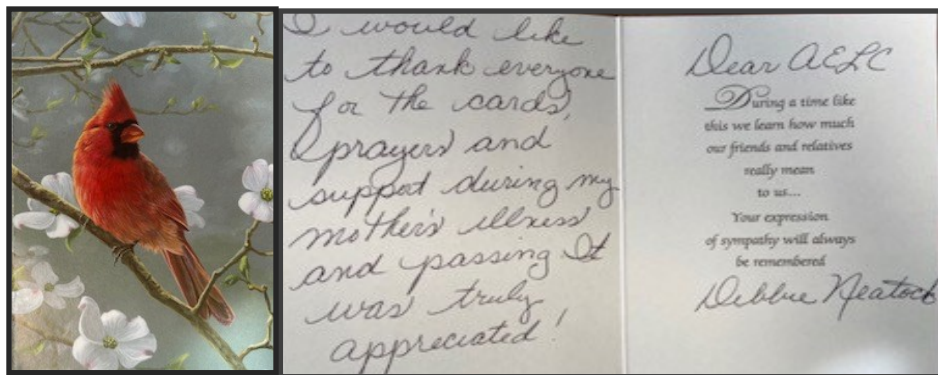 I would like
to thank everyone
for the cards,
prayers and
support during my
mother's illness
and passing It
was truly
appreciated!
Dear AELC
During a time like
this we learn how much
our friends and relatives
really mean
to us...
Your expression
of sympathy will always
be remembered
Debbie Neatock